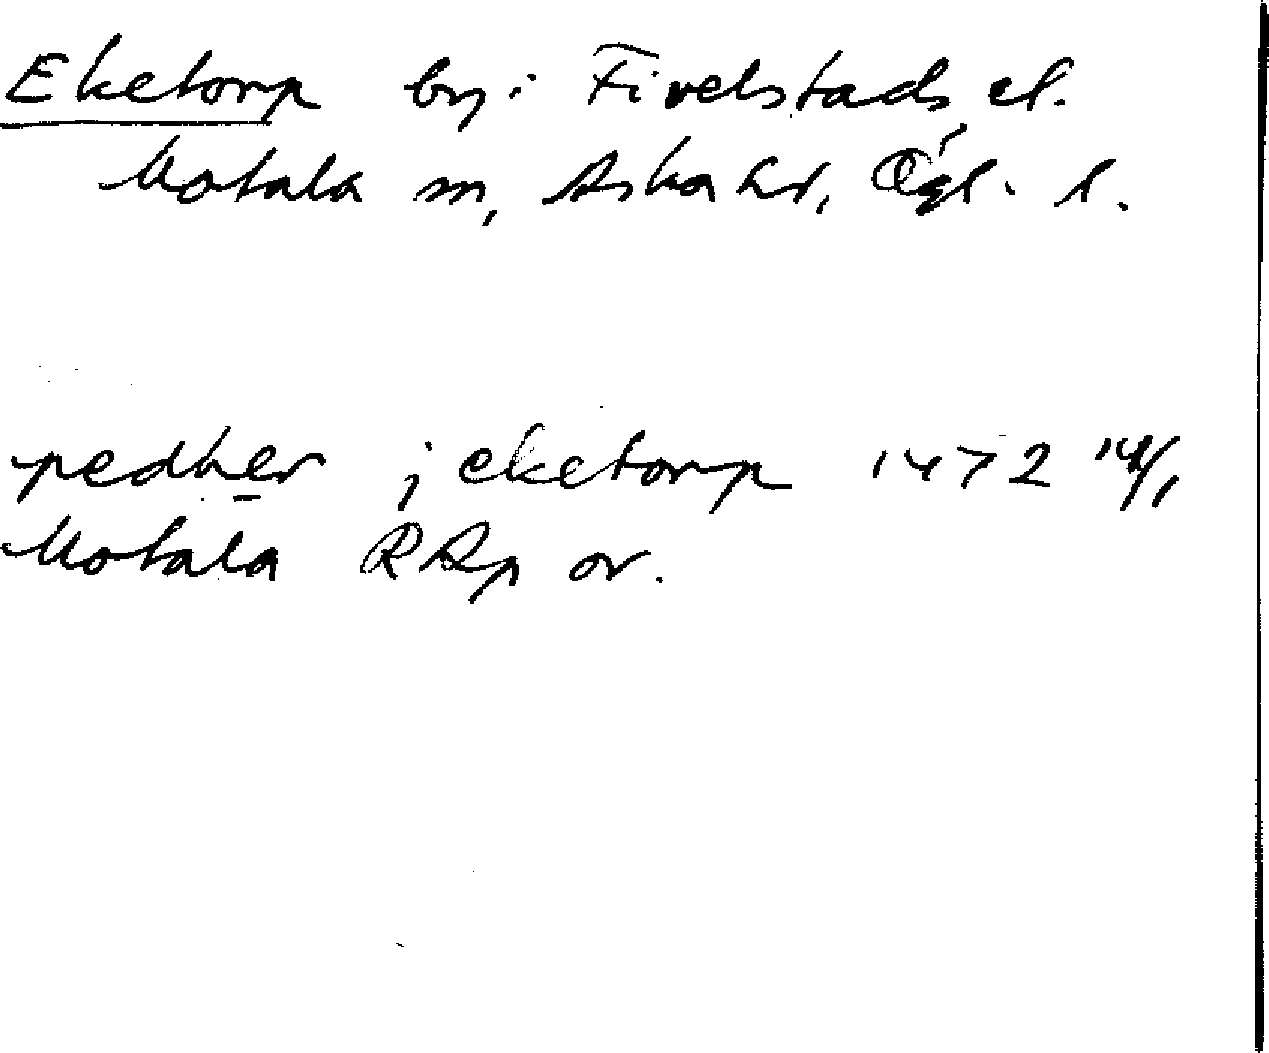 Eketorp by i Fivelstads el.
Motala sn, Aska hd, Ögl. l.
pedher j eketorp 1472 14/1
Motala RAp or.